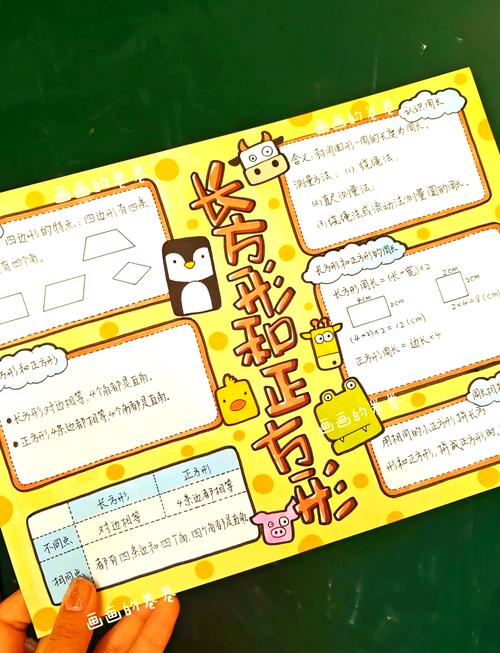 长方形和正方形
四边形的特点：四边形有四条
有四个角。
方形和正方形
长方形对边相等，4个角都是直角。
正方形4条边都相等，4个角都是直角。
长方形
正方形
不同点
对边相等
4条边都相等
相同点
都有四条边和四个角，四个角都是直角
认识周长
含义：封闭图形一周的长度为周长。
测量方法：(1) 绕绳法。
(2) 直尺测量法。
(3) 绕绳法或滚动法测量圆的周长。
长方形和正方形的周长
长方形周长=(长+宽)×2
4cm
2cm
(4+2)×2=12(cm)
2cm
2cm
2×4=8(cm)
正方形周长=边长×4
用相同的小正方形，拼长方
形和正方形，拼成正方形时，
画画的卷卷
画画的卷卷
画画的卷卷
画画的卷卷